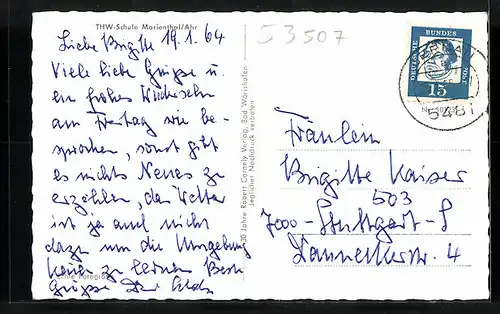 THW-Schule Marienthal/Ahr
Liebe Brigitte 19.1.64
Viele liebe Grüsse u.
ein frohes Wiedersehn
am Freitag wie be-
sprochen, sonst gibt
es nichts Neues zu
erzählen, das Wetter
ist ja auch nicht
dazu um die Umgebung
kennen zu lernen Beste
Grüsse Dein
53507
30 Jahre Robert Connely Verlag, Bad Wörishofen
Jeglicher Nachdruck verboten
DEUTSCHE BUNDESPOST
15
5481
Fräulein
Brigitte Kaiser
503
7000-Stuttgart-S
Danneckerstr. 4